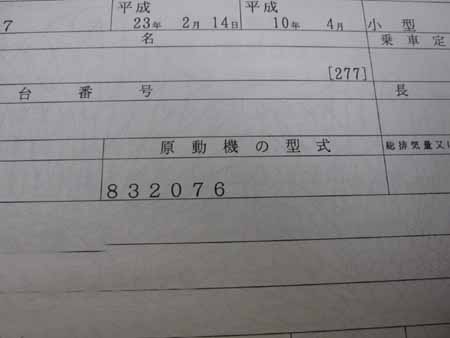 平成 平成
7 23年 2月 14日 10年 4月 小型
名 乗車定
[277]
台番号 長
原動機の型式 総排気量又は
832076